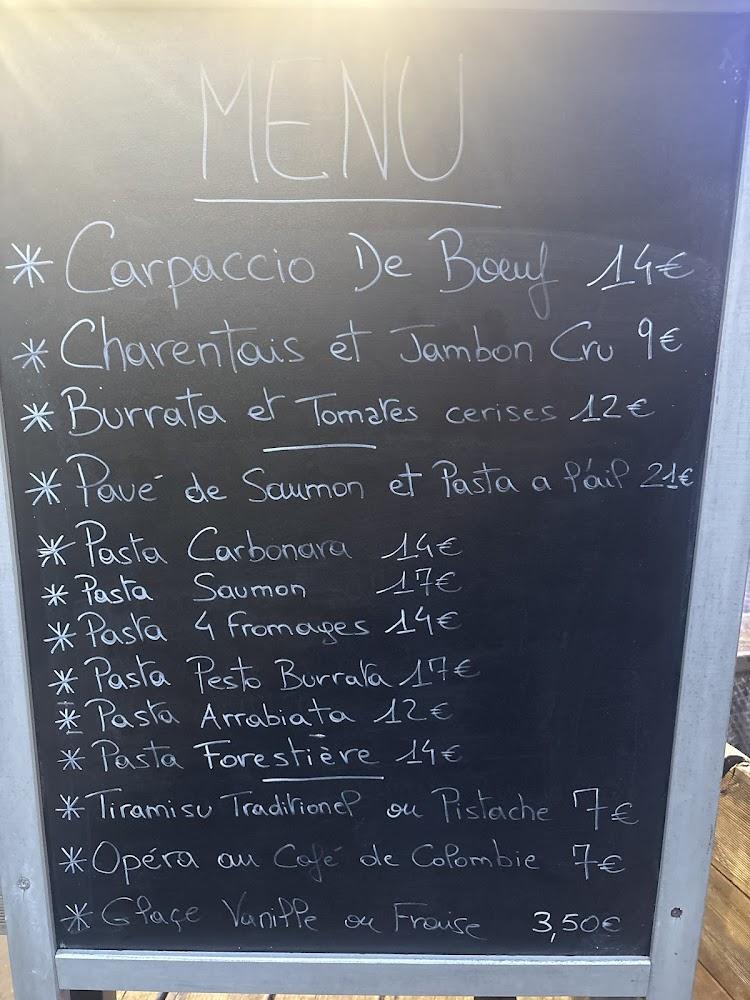 MENU
* Carpaccio De Bœuf 14€
* Charentais et Jambon Cru 9€
* Burrata et Tomates cerises 12€
* Pavé de Saumon et Pasta a l'ail 21€
* Pasta Carbonara 14€
* Pasta Saumon 17€
* Pasta 4 fromages 14€
* Pasta Pesto Burrata 17€
* Pasta Arrabiata 12€
* Pasta Forestière 14€
* Tiramisu Traditionel ou Pistache 7€
* Opéra au Café de Colombie 7€
* Glaçe Vanille ou Fraise 3,50€